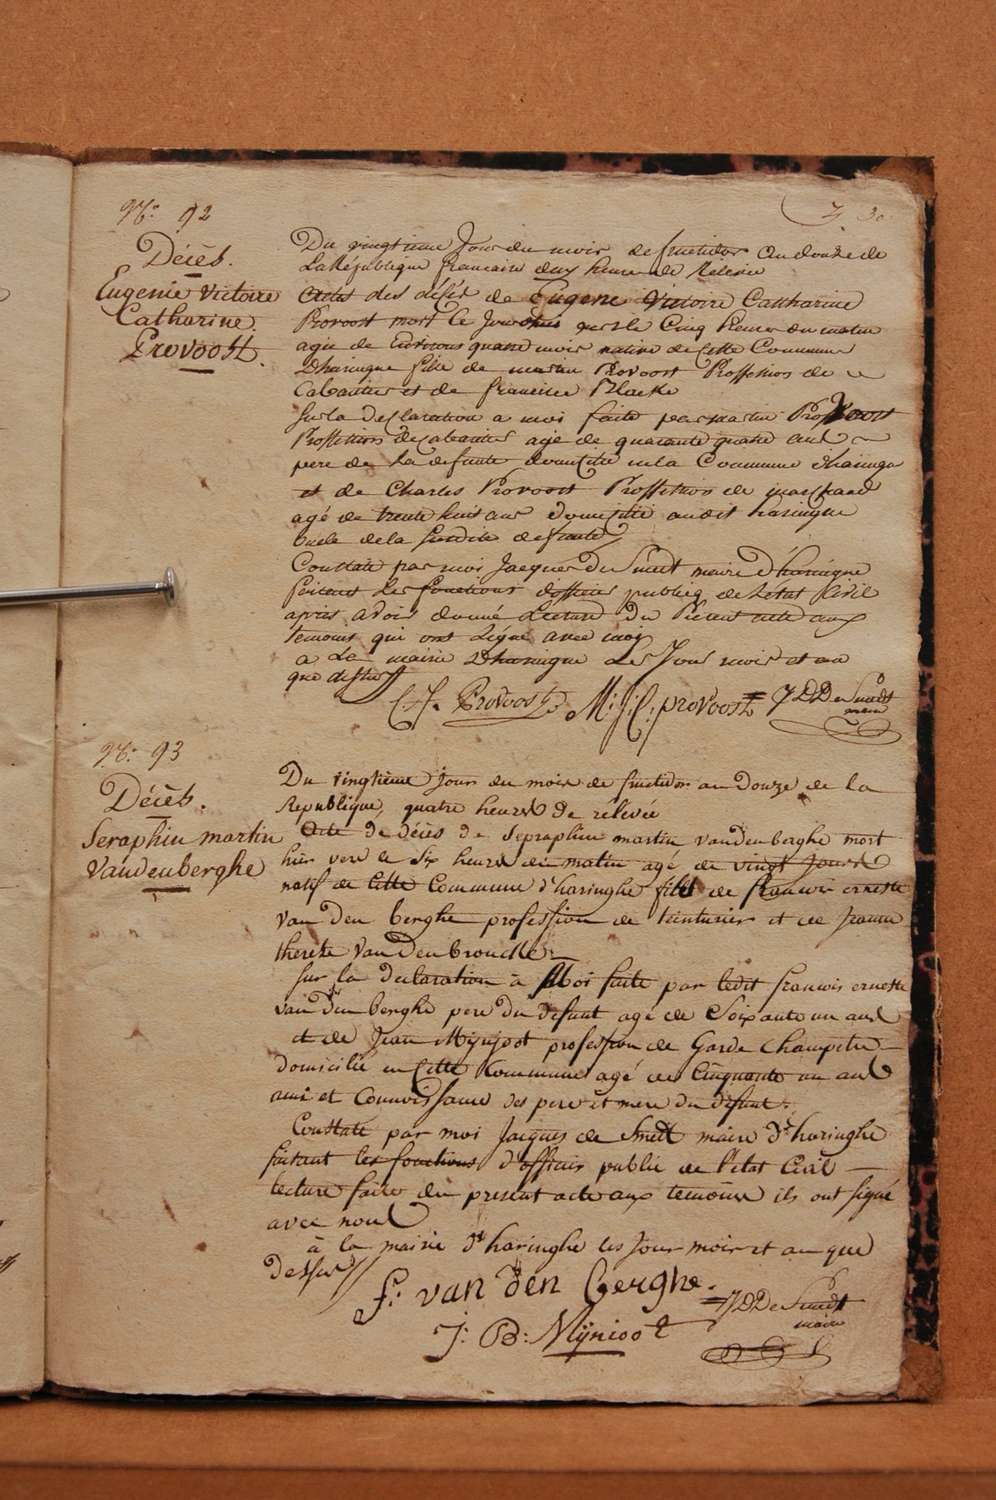 30
N.º 92
Décès.
Eugenie Victoire
Catharine
Provoost.
Du vingtieme Jour du mois de fructidor An douze de
La République francaise deux heures de Relevée
Acte des désés de Eugene Victoire Catharine
Provoost mort le Jour hier vers le Cinq heures du matin
agée de environs quatre mois native de Cette Commune
Dharingue fille de martin Provoost Proffetion de
Cabartier et de francisce Placke
Sur la desclaration a moi faite par martin Provoost
Proffetion de cabartier agé de quarante quatre ans
pere de la defunte domicilie en la Commune dharingue
et de Charles Provoost Proffetion de marchand
agé de trente huit ans domicilié audit haringue
oncle de la susdite defunte
Constaté par moi Jacques De Smedt maire d'haringue
faisant les fonctions d'officier publiq de L'état Civil
apriés avoir donné Lecture du Present acte aux
temoins qui ont signé avec moi
a La mairie Dharingue Les Jour mois et an
que dessus
C.f. Provoost. M: J: C: provoost J D De Smedt
maire
N.º 93
Décès.
Seraphin martin
Vandenberghe
Du vingtieme jours du mois de fructidor an Douze de la
Republique, quatre heures de relévée
Acte de décès de Sepraphin martin vandenberghe mort
hier vers le six heures du matin agé de vingt Jours
natif de Cette Commune d'haringhe fils de francois erneste
van den berghe profession de teinturier et de Jeanne
therese Van Den broucke
Sur la declaration à Moi faite par ledit francois erneste
van den berghe pere du defunt agé de Soixante un ans
et de Jean Mijnjoot profession de Garde Champetre
domicilié en Cette Commune agé de Cinquante un ans
ami et Connoissance des pere et mere du defunt.
Constaté par moi Jacques de Smedt maire d'haringhe
faisant les fonctions d'officier public de l'état Civil
lecture faite du present acte aux temoins ils ont signé
avec nous
à la mairie d'haringhe les Jour mois et an que
dessus
f: van den Berghe. J D De Smedt
maire
J: B: Mijnioot